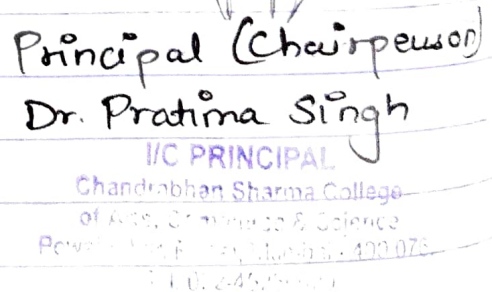 Principal (Chairperson)
Dr. Pratima Singh
I/C PRINCIPAL
Chandrabhan Sharma College
of Arts, Commerce & Science
400 076